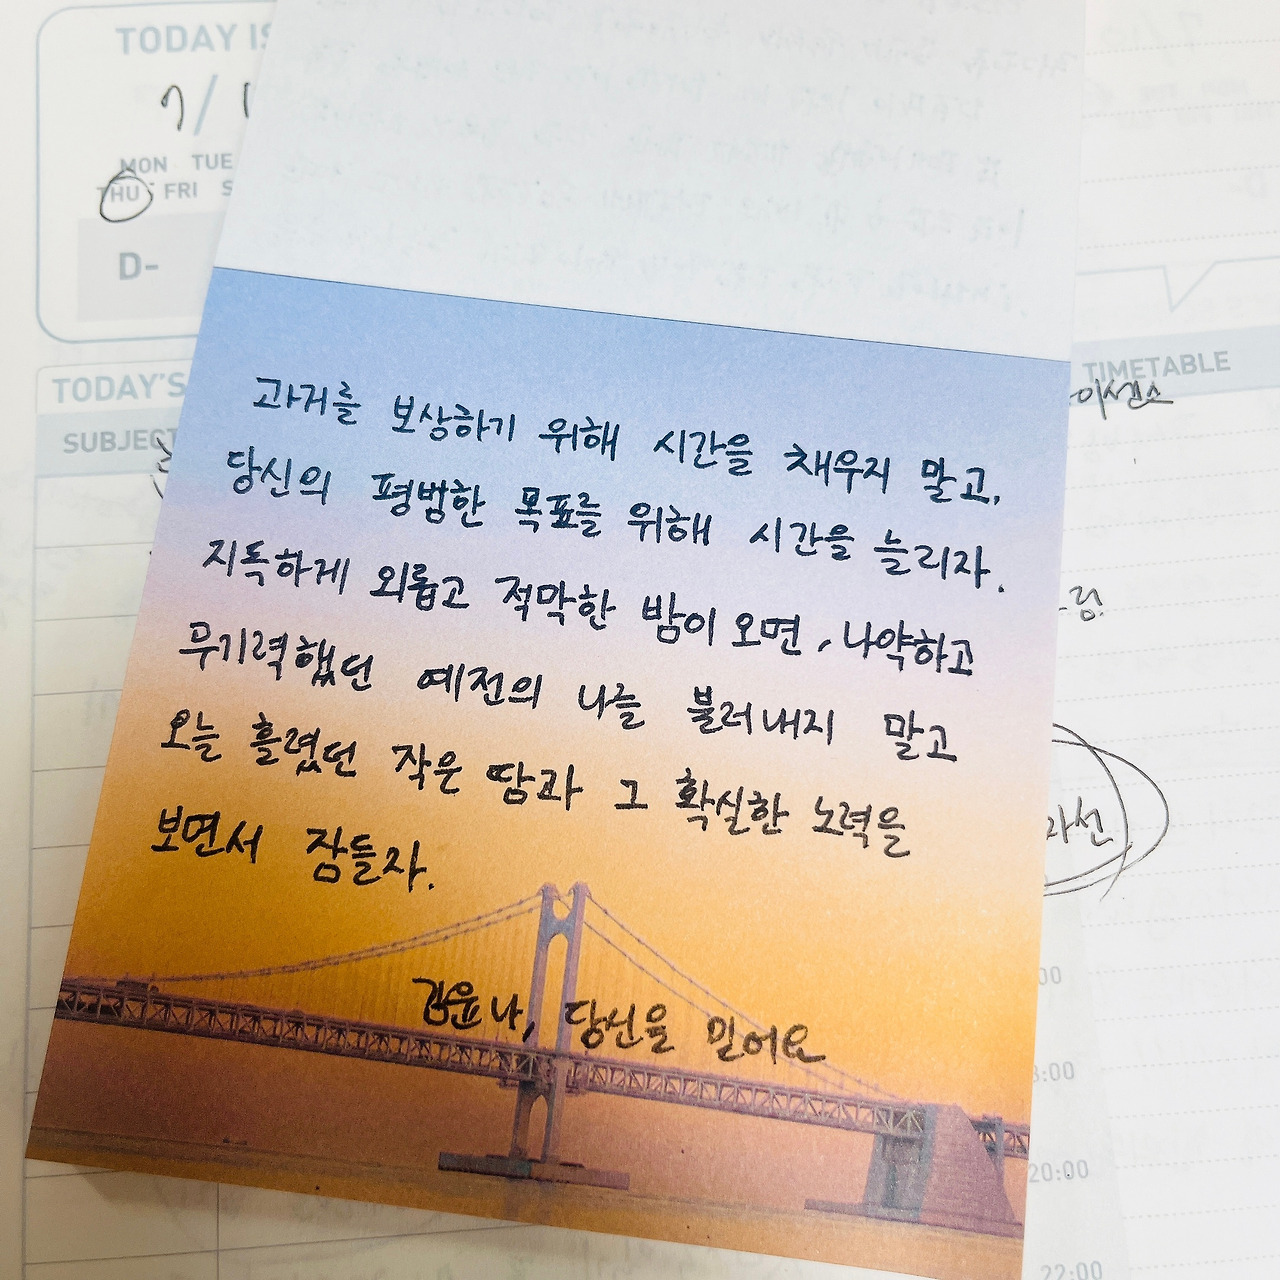 TODAY IS
7/1
MON TUE
THU FRI S
D-
TODAY'S
SUBJECT
TIMETABLE
과거를 보상하기 위해 시간을 채우지 말고,
당신의 평범한 목표를 위해 시간을 늘리자.
지독하게 외롭고 적막한 밤이 오면, 나약하고
무기력했던 예전의 나를 불러내지 말고
오늘 흘렸던 작은 땀과 그 확실한 노력을
보면서 잠들자.
김윤나, 당신을 믿어요
20:00
22:00